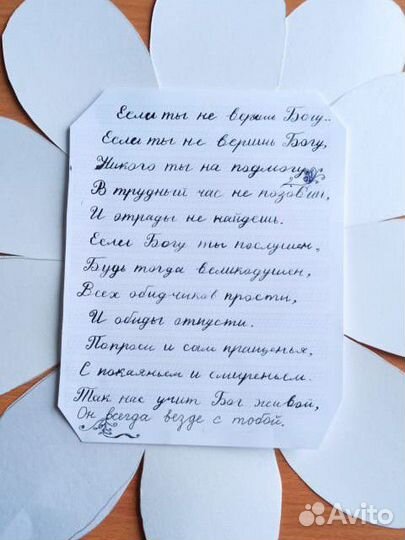 Если ты не веришь Богу..
Если ты не веришь Богу,
Никого ты на подмогу
В трудный час не позовёшь,
И отрады не найдёшь.
Если Богу ты послушен,
Будь тогда великодушен,
Всех обидчиков прости,
И обиды отпусти.
Попроси и сам прощенья,
С покаяньем и смиреньем.
Так нас учит Бог живой,
Он всегда везде с тобой.
Avito